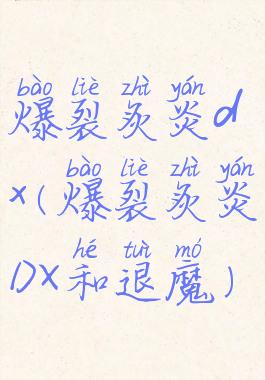 bào liè zhì yán
爆裂炙炎d
bào liè zhì yán
x(爆裂炙炎
hé tuì mó
DX和退魔)